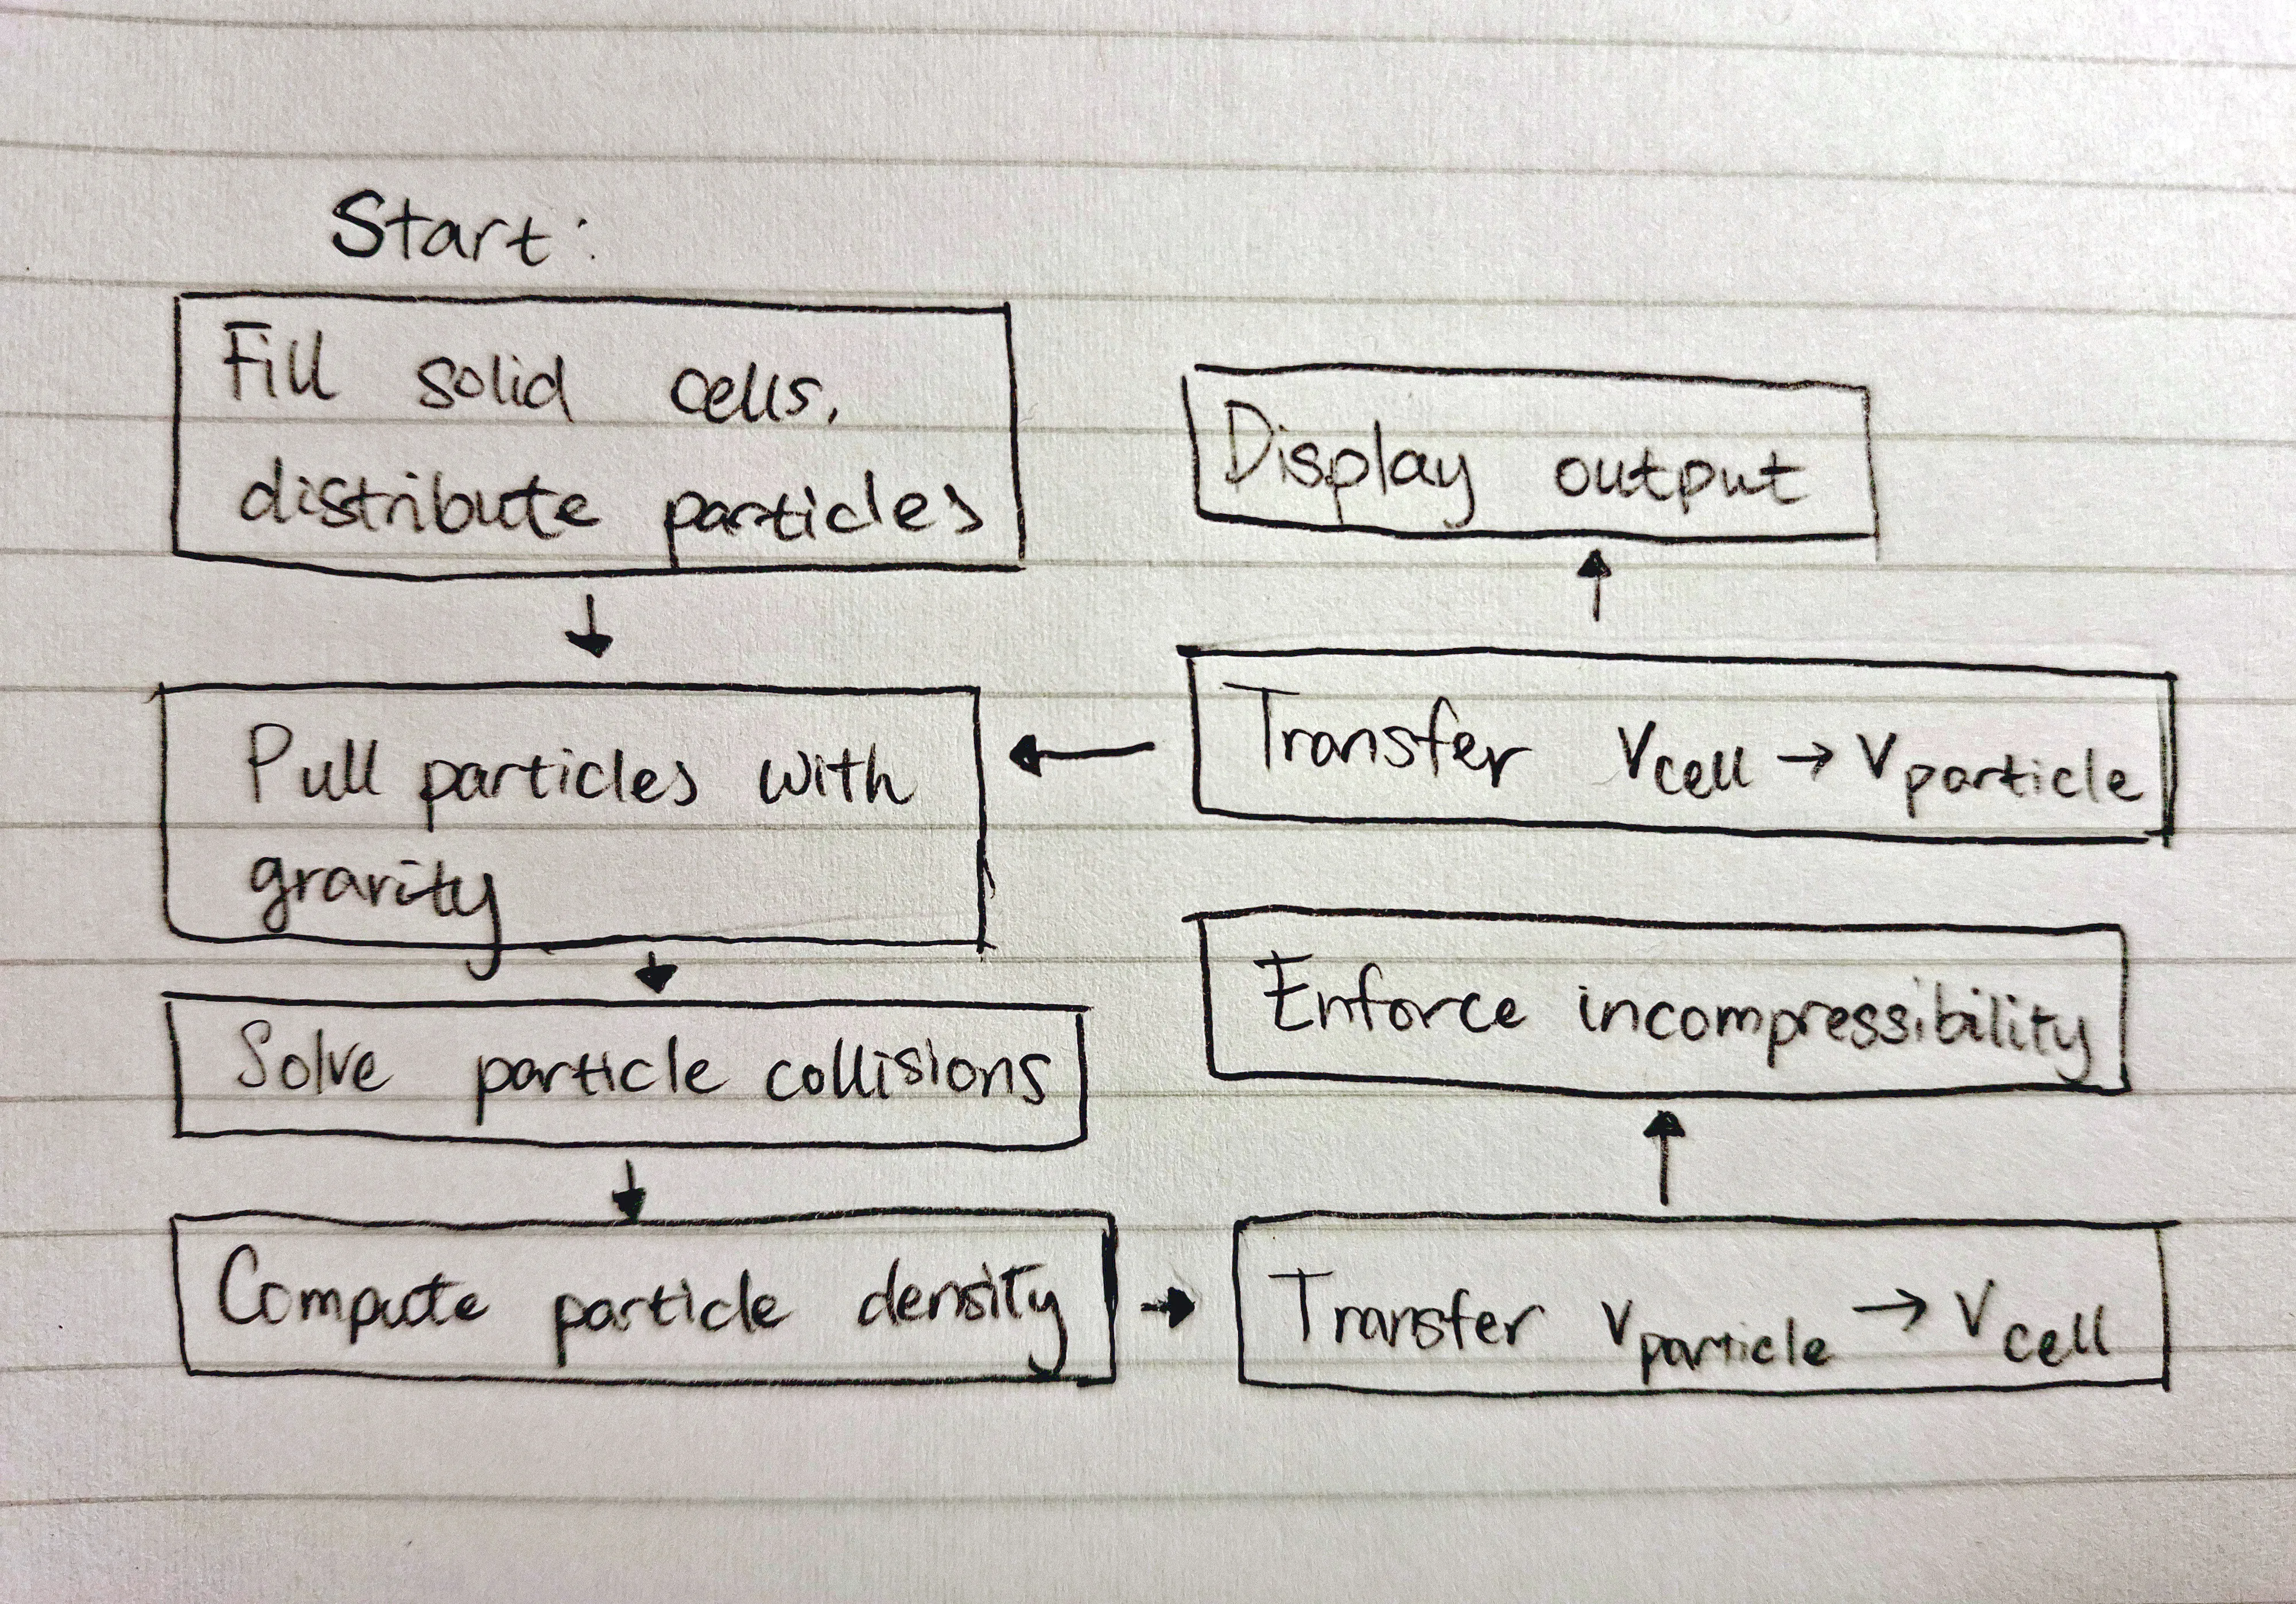 Start:
Fill solid cells,
distribute particles
Pull particles with
gravity
Solve particle collisions
Compute particle density
Transfer v particle → v cell
Enforce incompressibility
Transfer v cell → v particle
Display output